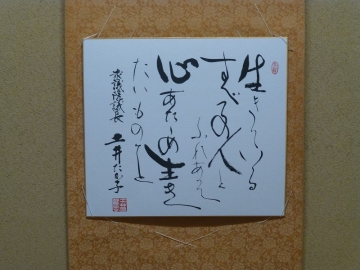 生きている
すべての人と
ふれあうし
心あたため生き
たいものと
衆議院議長
土井たか子